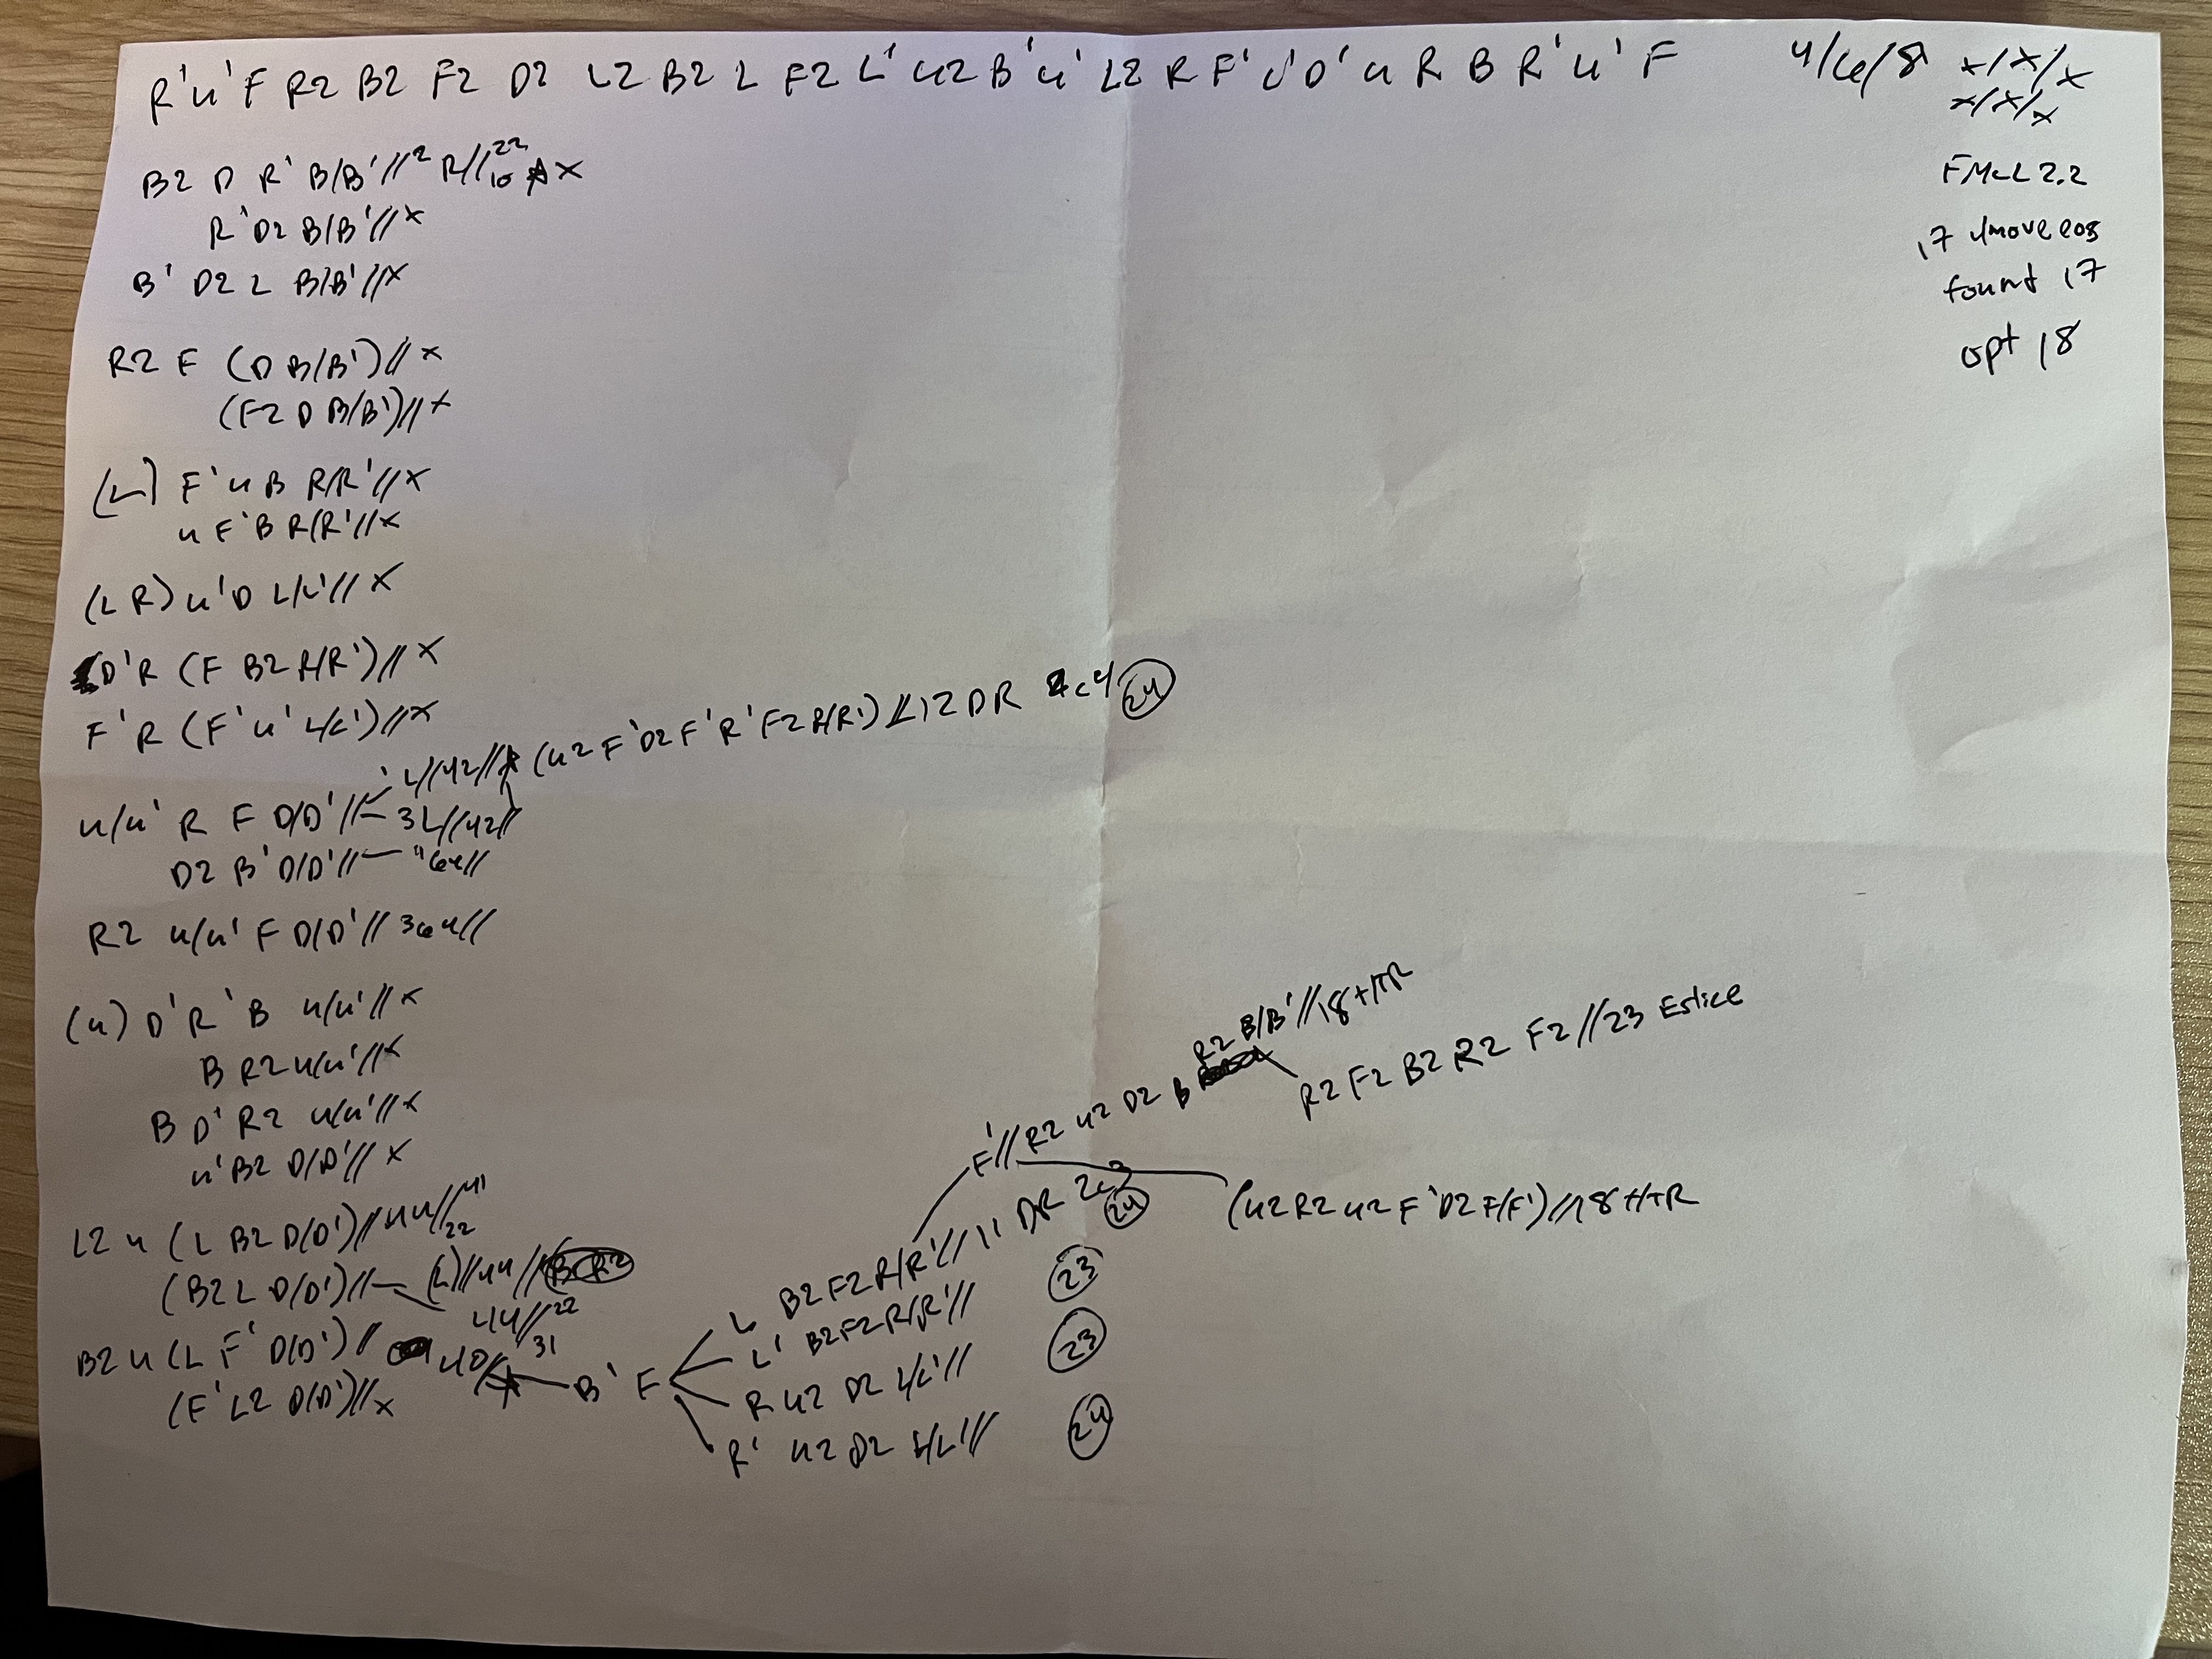 R' u' F R2 B2 F2 D2 L2 B2 L F2 L' u2 B' u' L2 R F' U' D' u R B R' u' F
4/6/8 x/x/x
x/x/x
FMCL 2.2
17 4move eos
found 17
opt 18
B2 D R' B/B' //2 R// 22 10 x
R' D2 B/B' // x
B' D2 L B/B' // x
R2 F (D B/B') // x
(F2 D B/B') // x
(L) F' u B R/R' // x
u F' B R/R' // x
(L R) u' D L/L' // x
D' R (F B2 R/R') // x
F' R (F' u' L/L') // x
L//42// (u2 F' D2 F' R' F2 R/R') // 12 DR 4c4 24
u/u' R F D/D' // 3L//42//
D2 B' D/D' // "64//
R2 u/u' F D/D' // 364//
(u) D' R' B u/u' // x
B R2 u/u' // x
B D' R2 u/u' // x
u' B2 D/D' // x
L2 u (L B2 D/D') // 44// 41 22
(B2 L D/D') // (L)//44//
44// 22
B2 u (L F' D/D') // 40// 31 B' F
(F' L2 D/D') // x
L B2 F2 R/R' // 11 DR 2c3 24
L' B2 F2 R/R' // 23
R u2 D2 L/L' // 23
R' u2 D2 L/L' // 24
F' // R2 u2 D2 B R2 B/B' // 18 HTR
R2 F2 B2 R2 F2 // 23 Eslice
(u2 R2 u2 F' D2 F/F') // 18 HTR